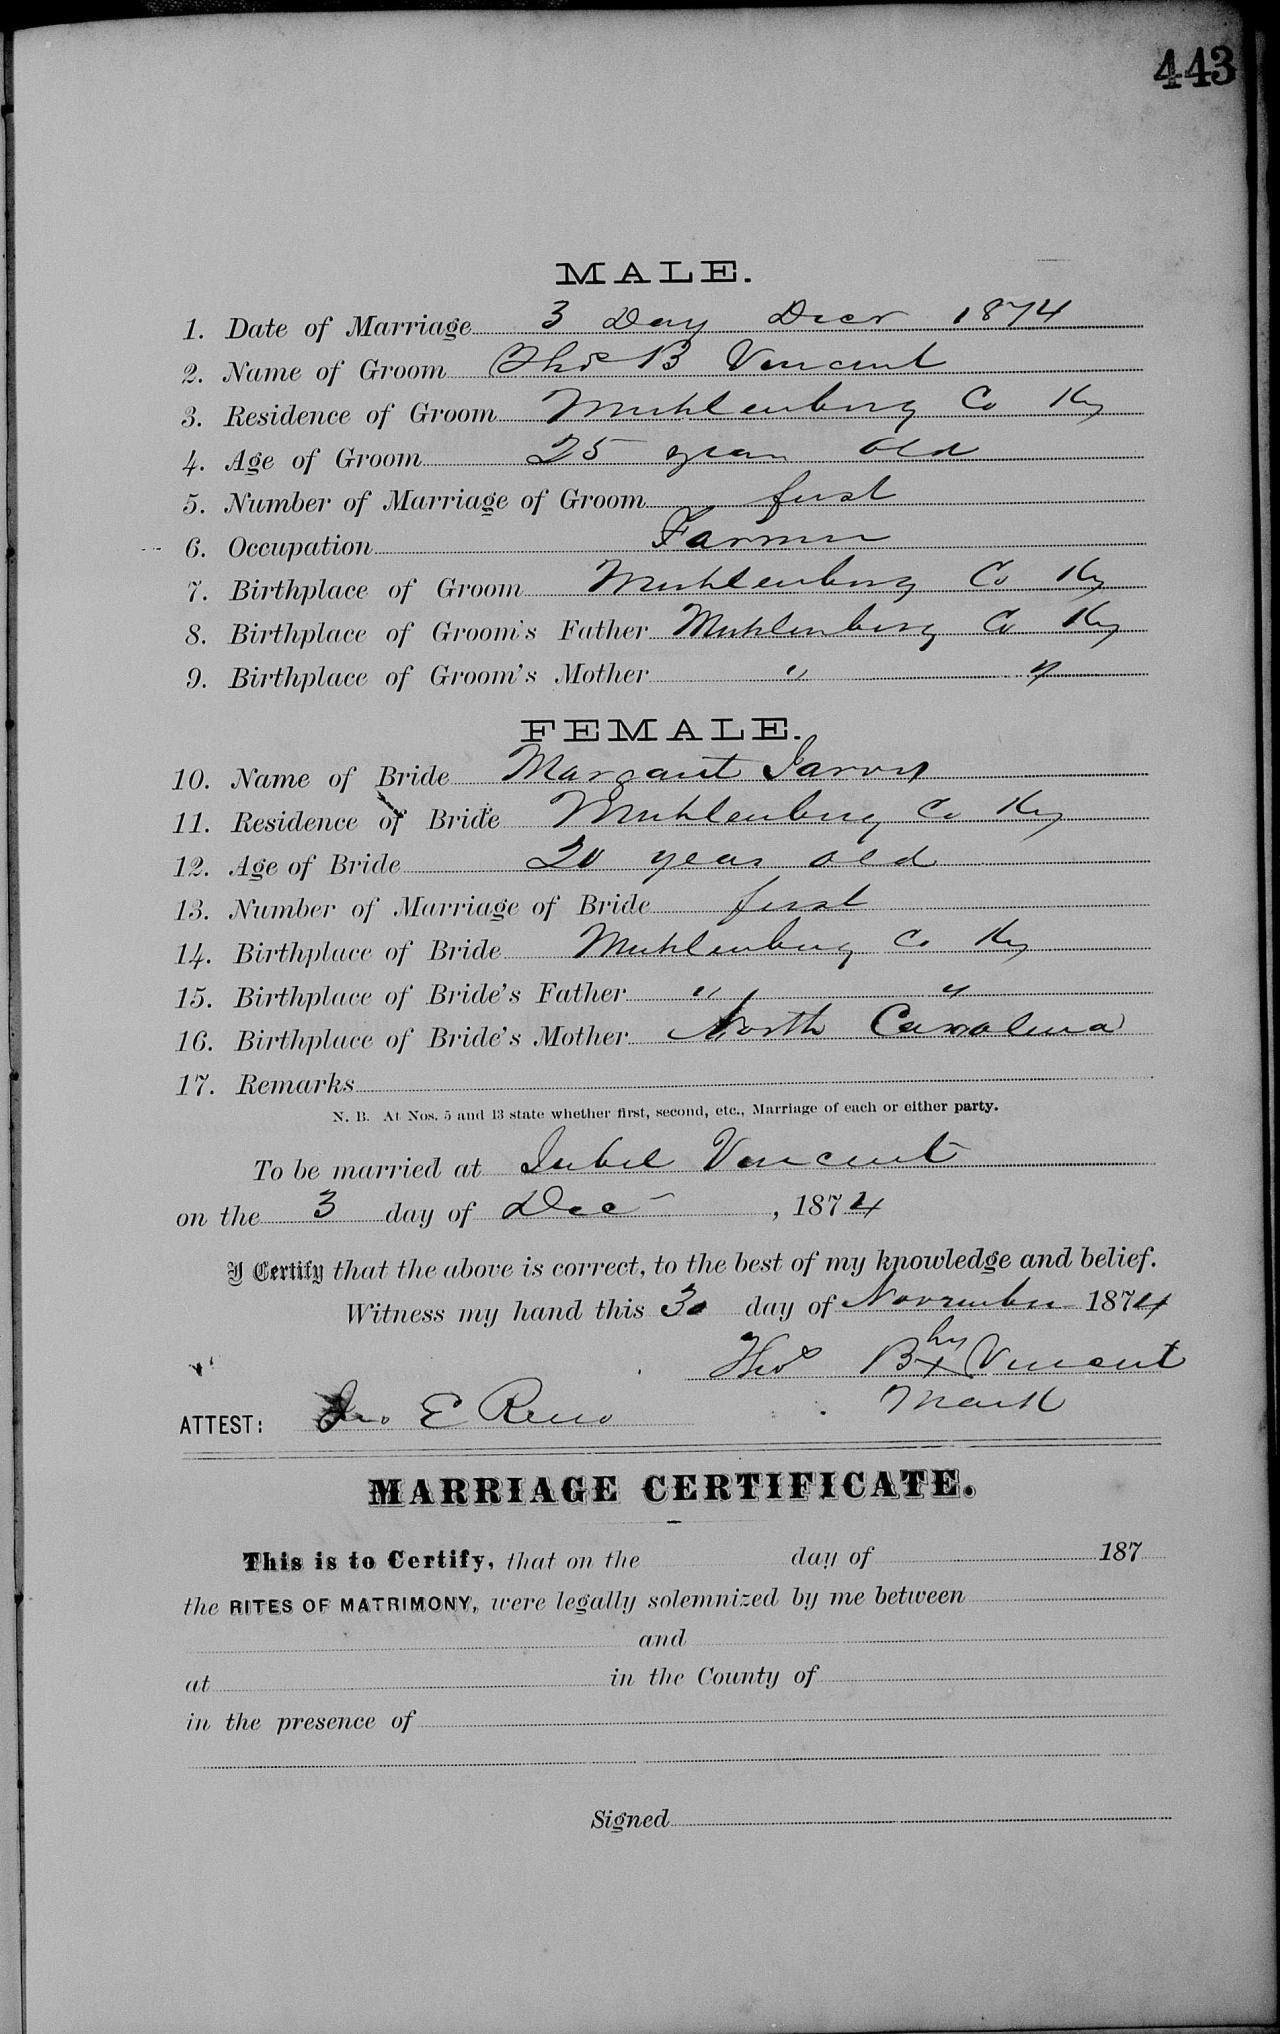 443
MALE.
1. Date of Marriage 3 Day Decr 1874
2. Name of Groom Thos B Vincent
3. Residence of Groom Muhlenburg Co Ky
4. Age of Groom 25 years old
5. Number of Marriage of Groom first
6. Occupation Farmer
7. Birthplace of Groom Muhlenburg Co Ky
8. Birthplace of Groom's Father Muhlenburg Co Ky
9. Birthplace of Groom's Mother " "
FEMALE.
10. Name of Bride Margaret Jarvis
11. Residence of Bride Muhlenburg Co Ky
12. Age of Bride 20 years old
13. Number of Marriage of Bride first
14. Birthplace of Bride Muhlenburg Co Ky
15. Birthplace of Bride's Father " "
16. Birthplace of Bride's Mother North Carolina
17. Remarks
N. B. At Nos. 5 and 13 state whether first, second, etc., Marriage of each or either party.
To be married at Vincent
on the 3 day of Dec , 1874
I Certify that the above is correct, to the best of my knowledge and belief.
Witness my hand this 30 day of November 1874
his
Thos B x Vincent
Mark
ATTEST: Jno E Reno
MARRIAGE CERTIFICATE.
This is to Certify, that on the day of 187
the RITES OF MATRIMONY, were legally solemnized by me between
and
at in the County of
in the presence of
Signed